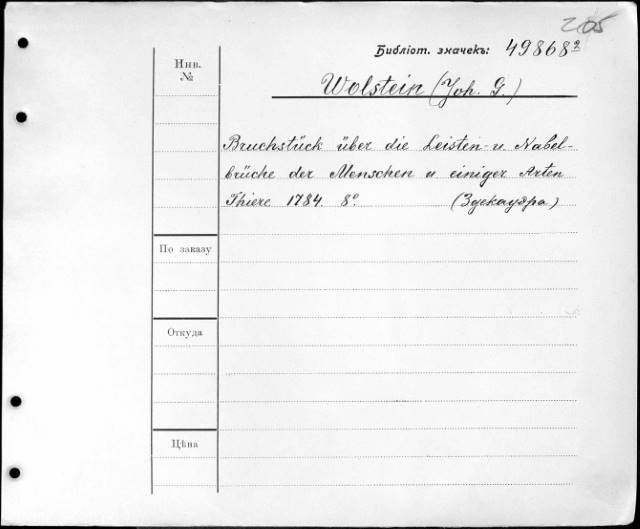 205
Библіот. значекъ: 49868²
Инв.
№
Wolstein (Joh. G.)
Bruchstück über die Leisten- u. Nabel-
brüche der Menschen u einiger Arten
Thiere 1784. 8º. (Здекауэра)
По заказу
Откуда
Цѣна